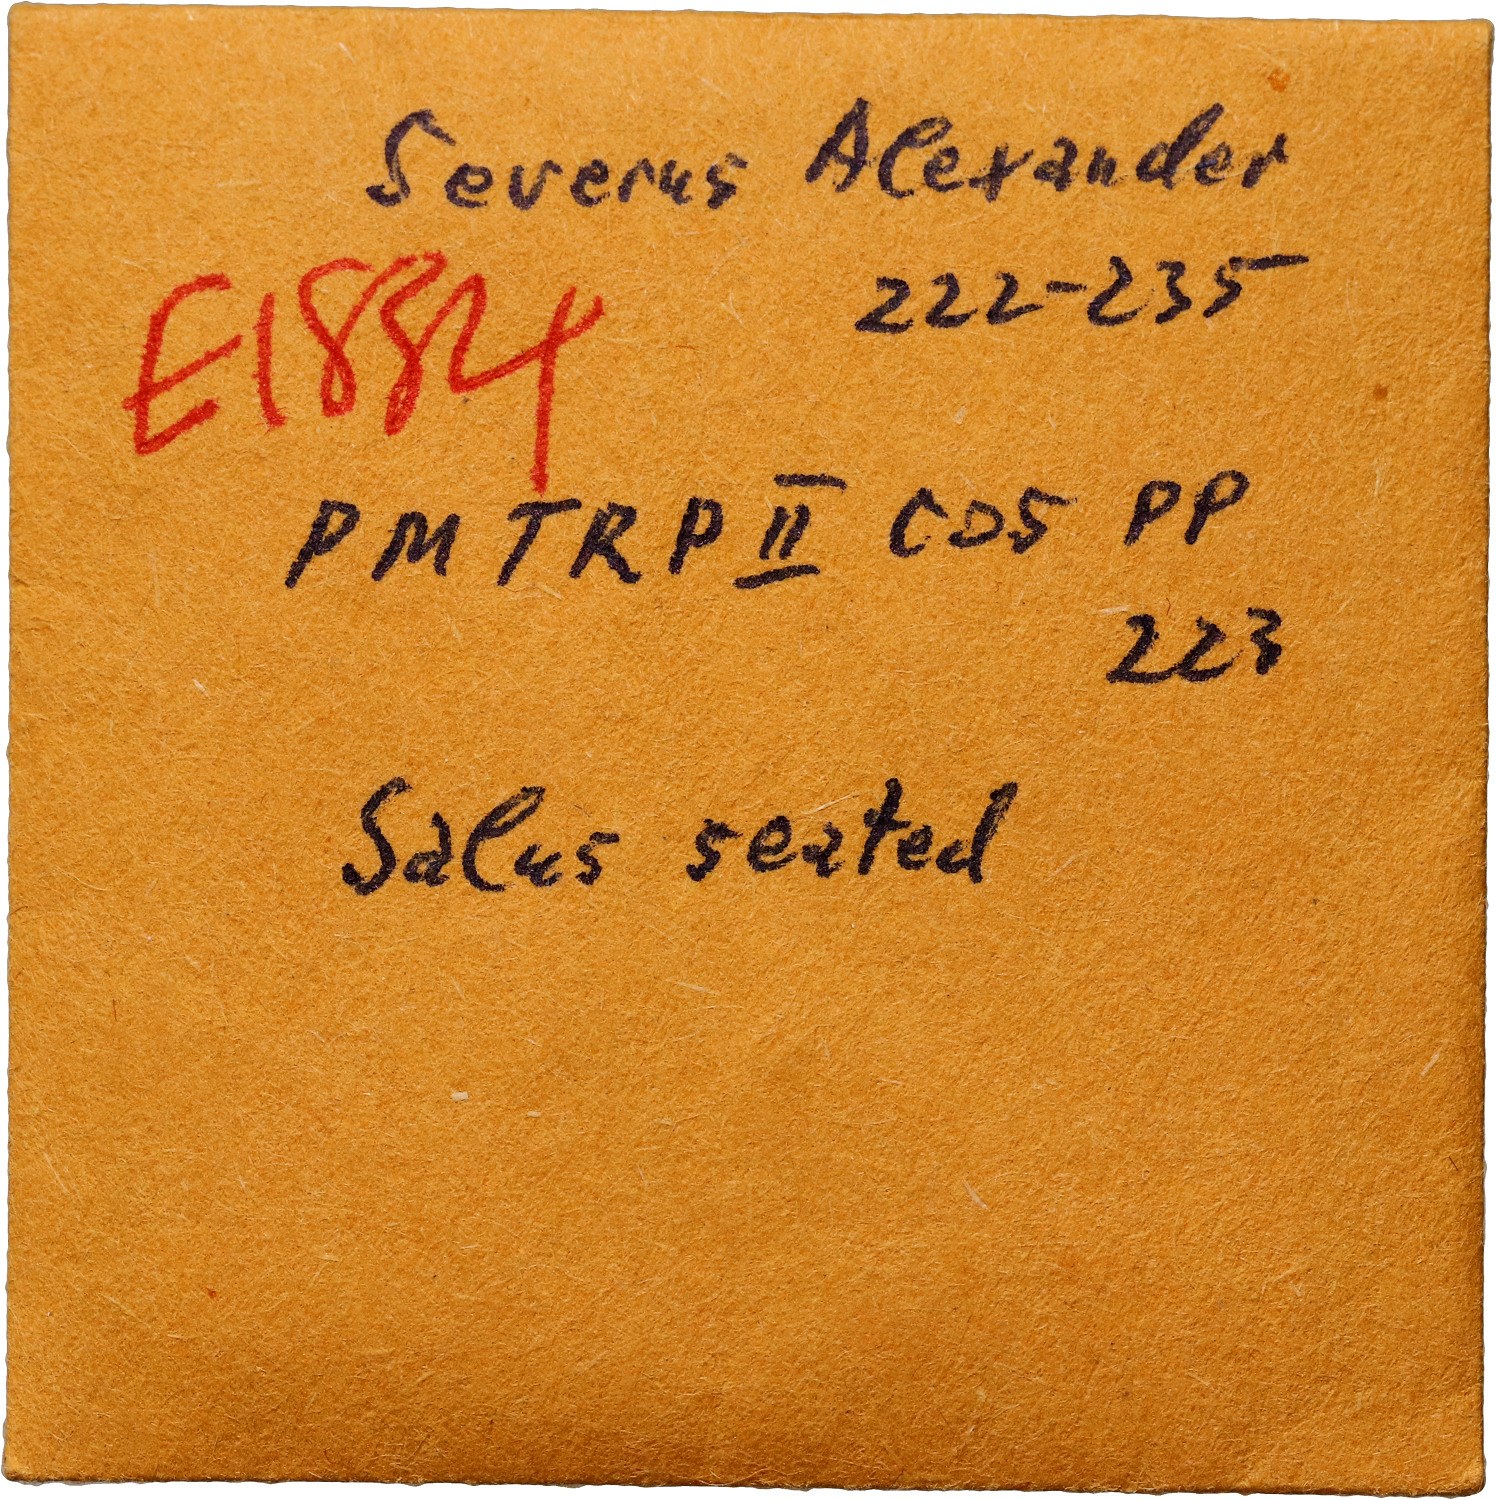 Severus Alexander
222-235
E1884
PMTRP II COS PP
223
Salus seated